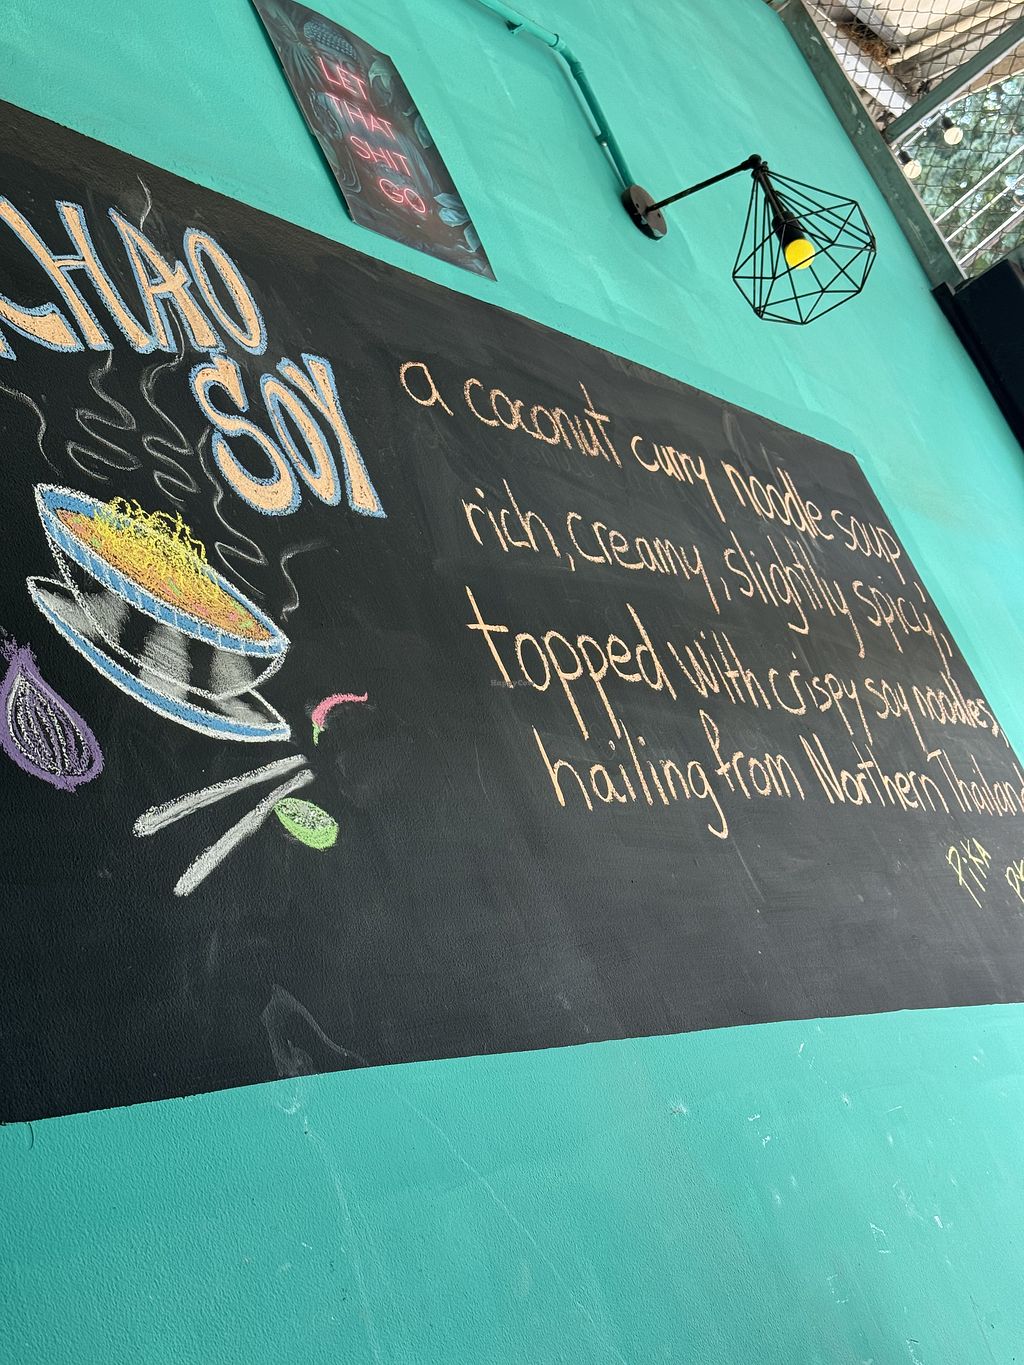 LET
THAT
SHIT
GO
KHAO
SOY
a coconut curry noodle soup
rich, creamy, slightly spicy,
topped with crispy soy noodles,
hailing from Northern Thailand
PiKA